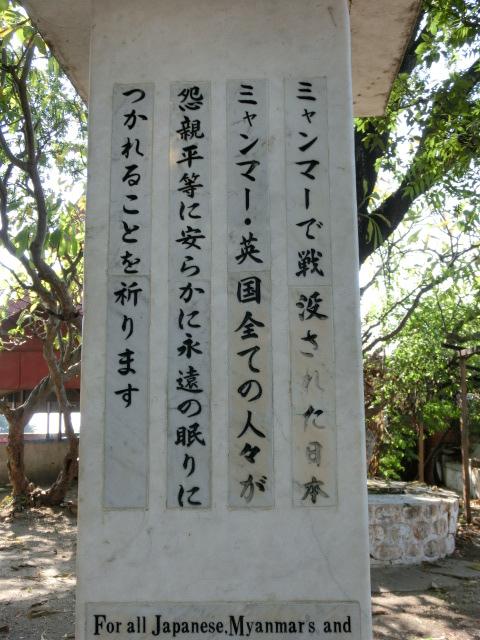 ミャンマーで戦没された日本
ミャンマー・英国全ての人々が
怨親平等に安らかに永遠の眠りに
つかれることを祈ります
For all Japanese,Myanmar's and